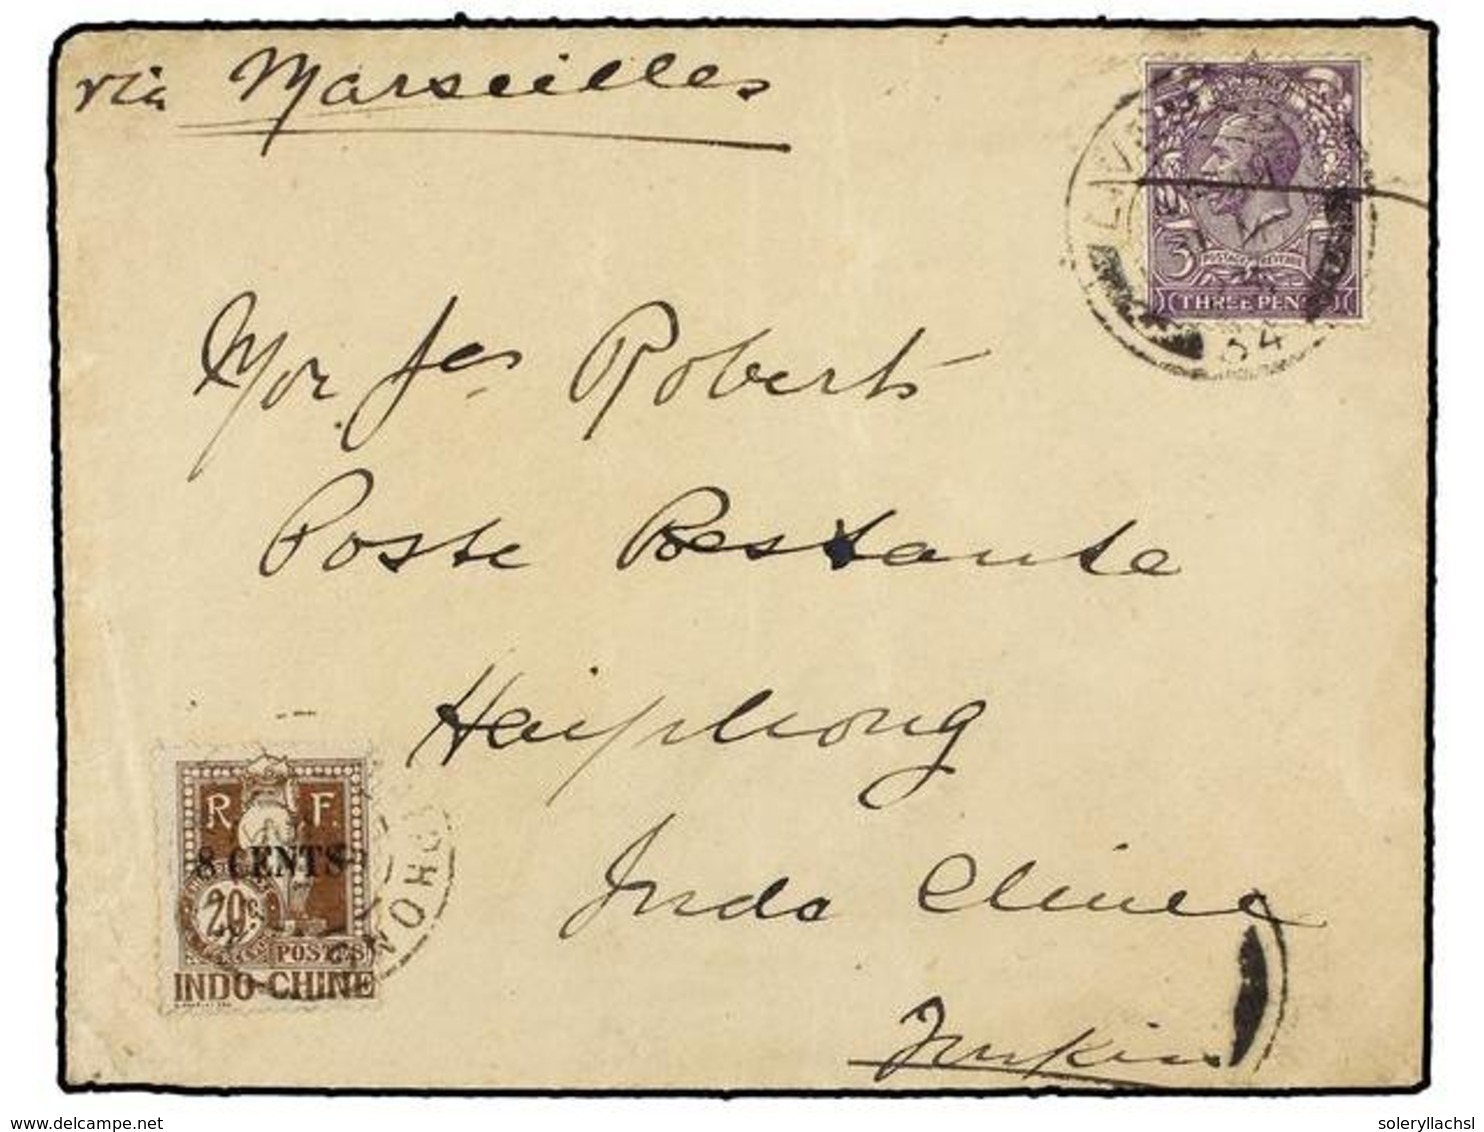 via Marseilles
THREE PEN
3
POSTAGE REVENUE
84
Mr Jas Roberts
Poste Restante
Haiphong
Indo Chine
Tonkin
R F
8 CENTS
20c
POSTES
INDO-CHINE
delcampe.net
soleryllachsl